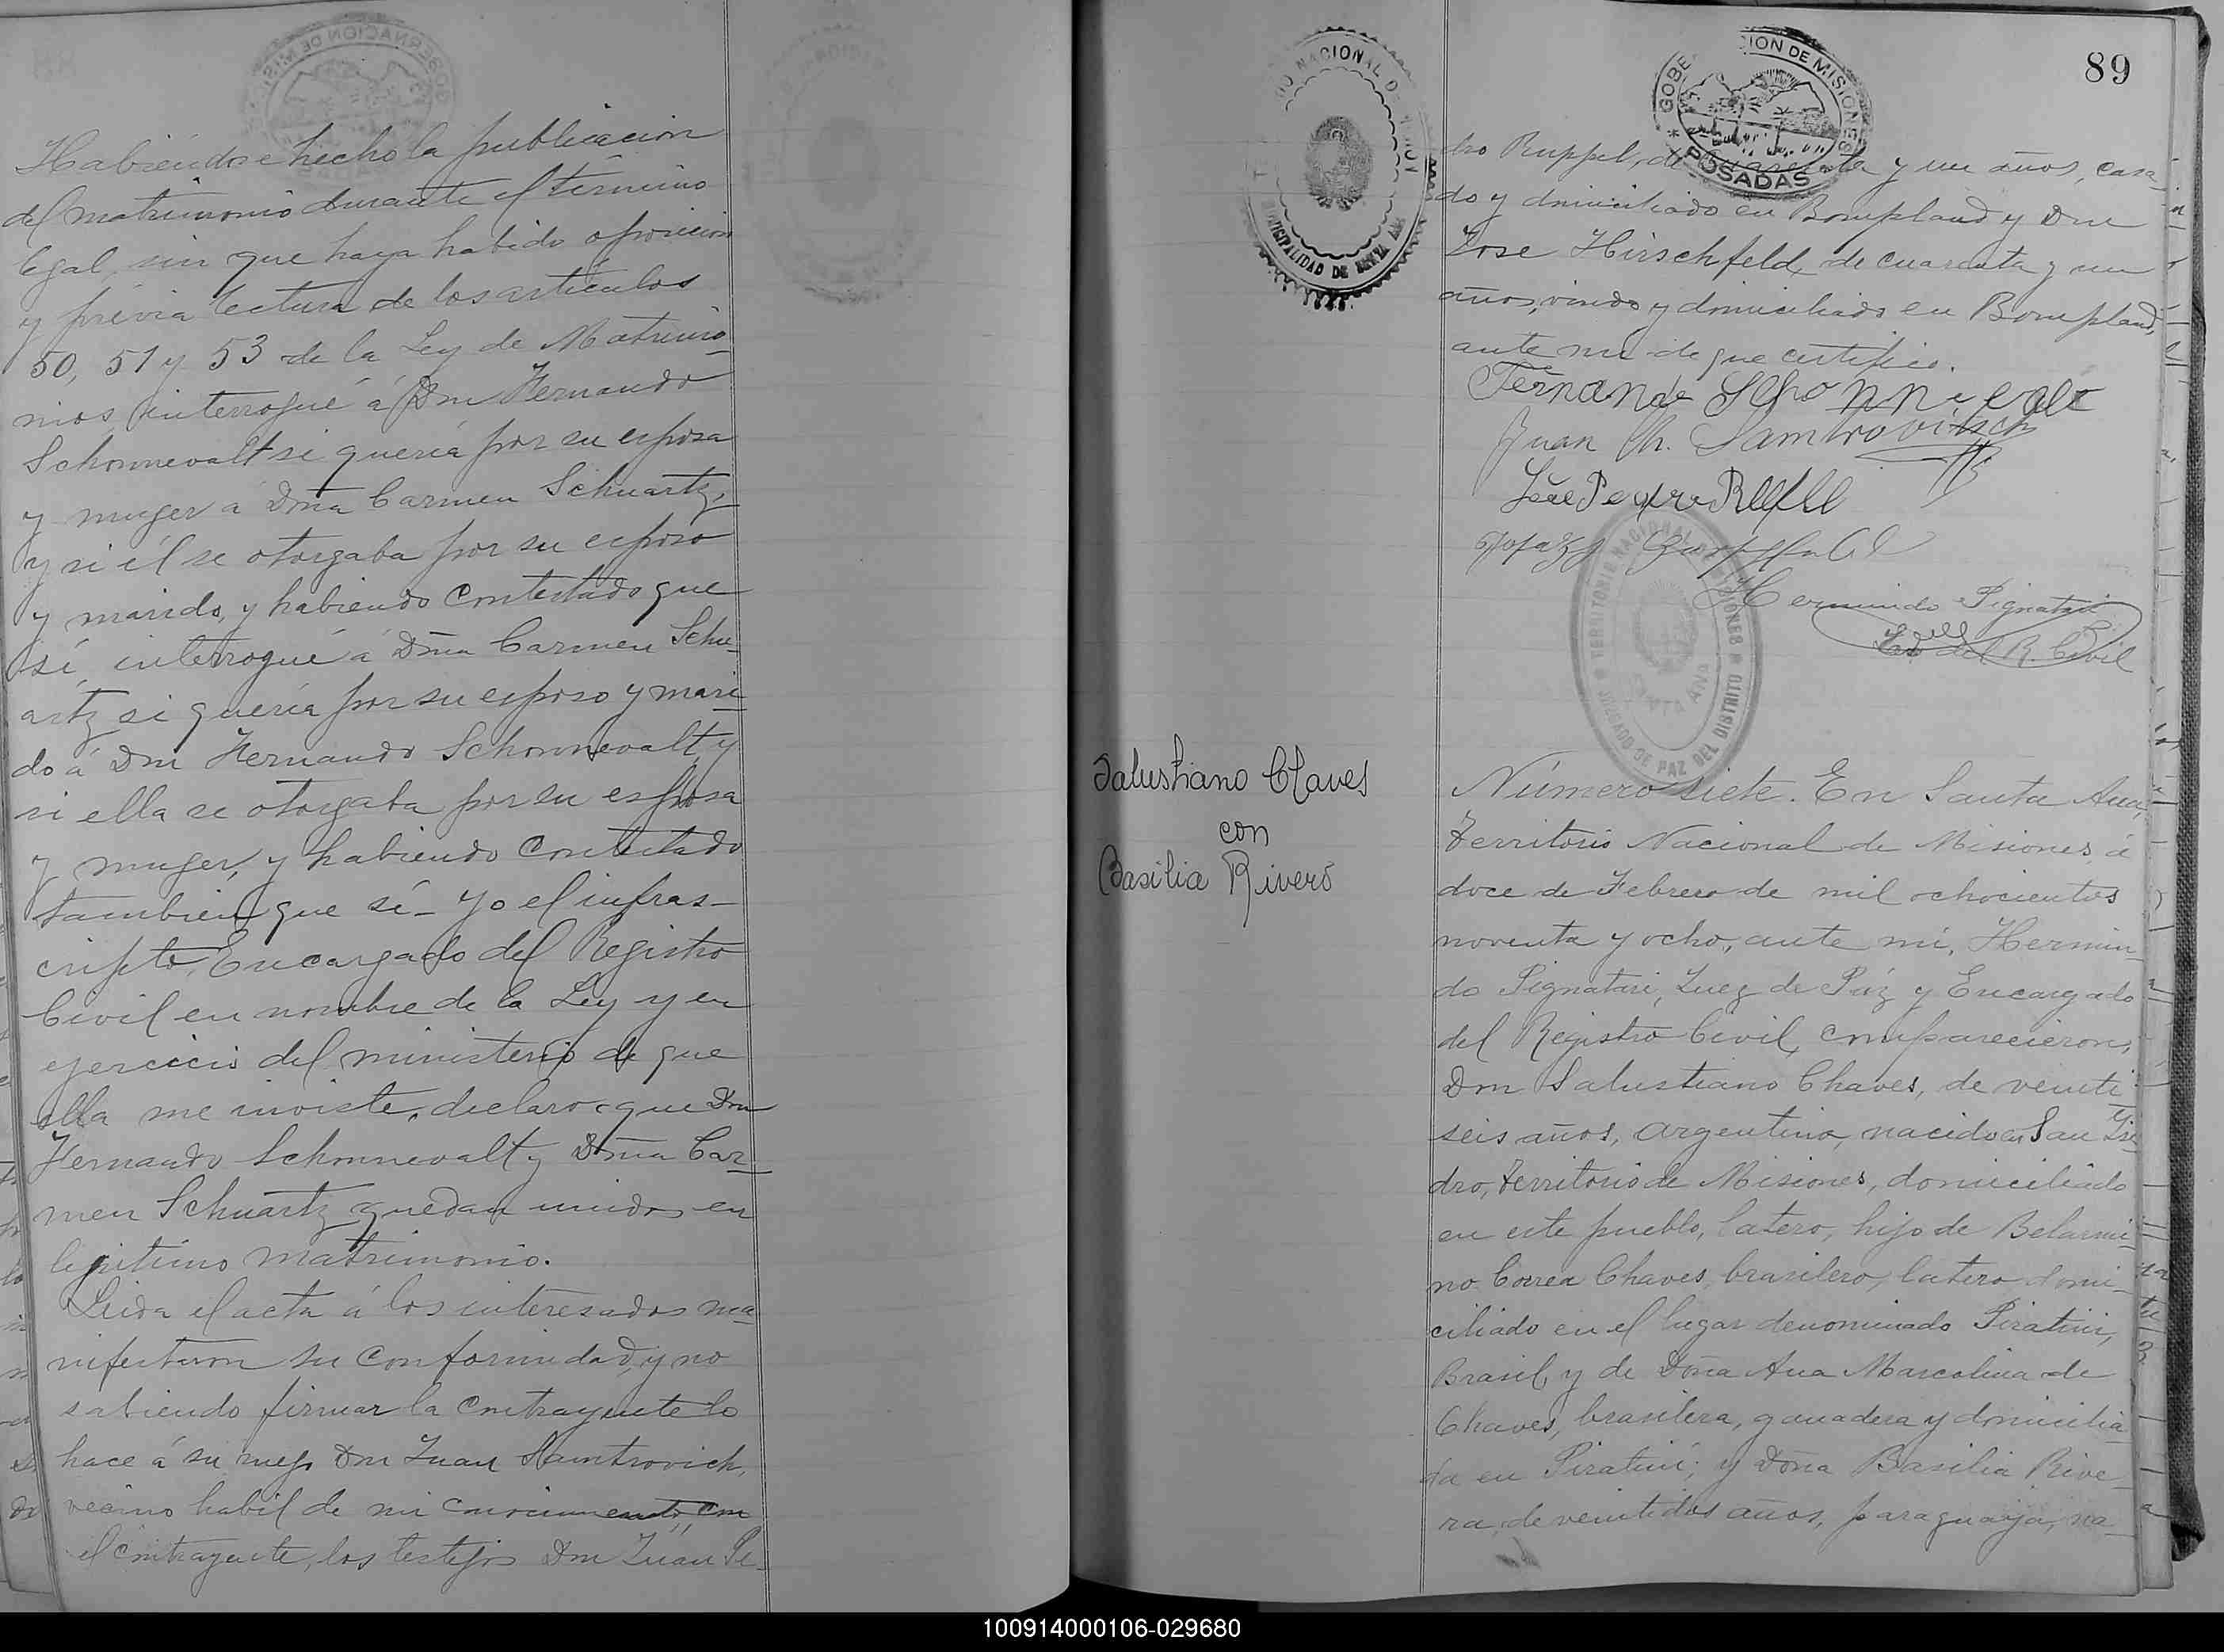 Habiéndose hecho la publicacion
del matrimonio durante el término
legal, sin que haya habido oposicion
y prévia lectura de los artículos
50, 51 y 53 de la Ley de Matrimo-
nios, interrogué á Don Hernando
Schonnevalt si quería por su esposa
y muger á Doña Carmen Schuartz,
y si él se otorgaba por su esposo
y marido, y habiendo contestado que
sí, interrogué á Doña Carmen Schu-
artz si quería por su esposo y mari-
do á Don Hernando Schonnevalt, y
si ella se otorgaba por su esposa
y muger, y habiendo contestado
tambien que sí - Yo el infras-
cripto, Encargado del Registro
Civil en nombre de la Ley y en
ejercicio del ministerio de que
ella me inviste, declaro que Don
Hernando Schonnevalt y Doña Car-
men Schuartz quedan unidos en
legitimo matrimonio.
Leida el acta á los interesados ma-
nifestaron su conformidad, y no
sabiendo firmar la contrayente lo
hace á su ruego Don Juan Samtrovich,
vecino habil de mi conocimiento, con
el contrayente, los testigos Don Juan Pe-
89
GOBERNACION DE MISIONES
POSADAS
MUNICIPALIDAD DE SANTA ANA
dro Ruppel, de cuarenta y un años, casa-
do y domiciliado en Bompland y Don
José Hirschfeld, de cuarenta y un
años, viudo y domiciliado en Bompland,
ante mi de que certifico.
Fernando Schonnevalt
Juan Ch. Samtrovitsch
João Pedro
Hermindo Pignatari
Endo del R. Civil
TERRITORIO NACIONAL DE MISIONES
JUZGADO DE PAZ DEL DISTRITO
SANTA ANA
Salustiano Chaves
con
Basilia Rivero
Número siete. En Santa Ana,
Territorio Nacional de Misiones, á
doce de Febrero de mil ochocientos
noventa y ocho, ante mi, Hermin-
do Pignatari, Juez de Páz y Encargado
del Registro Civil, comparecieron,
Don Salustiano Chaves, de veinti
seis años, argentino, nacido en San Ysi-
dro, territorio de Misiones, domiciliado
en este pueblo, latero, hijo de Belarmi-
no Correa Chaves, brasilero, latero, domi-
ciliado en el lugar denominado Piratini,
Brasil, y de Doña Ana Marcolina de
Chaves, brasilera, ganadera y domicilia-
da en Piratiní; y Doña Basilia Rive-
ra, de veintidos años, paraguaya, na-
100914000106-029680